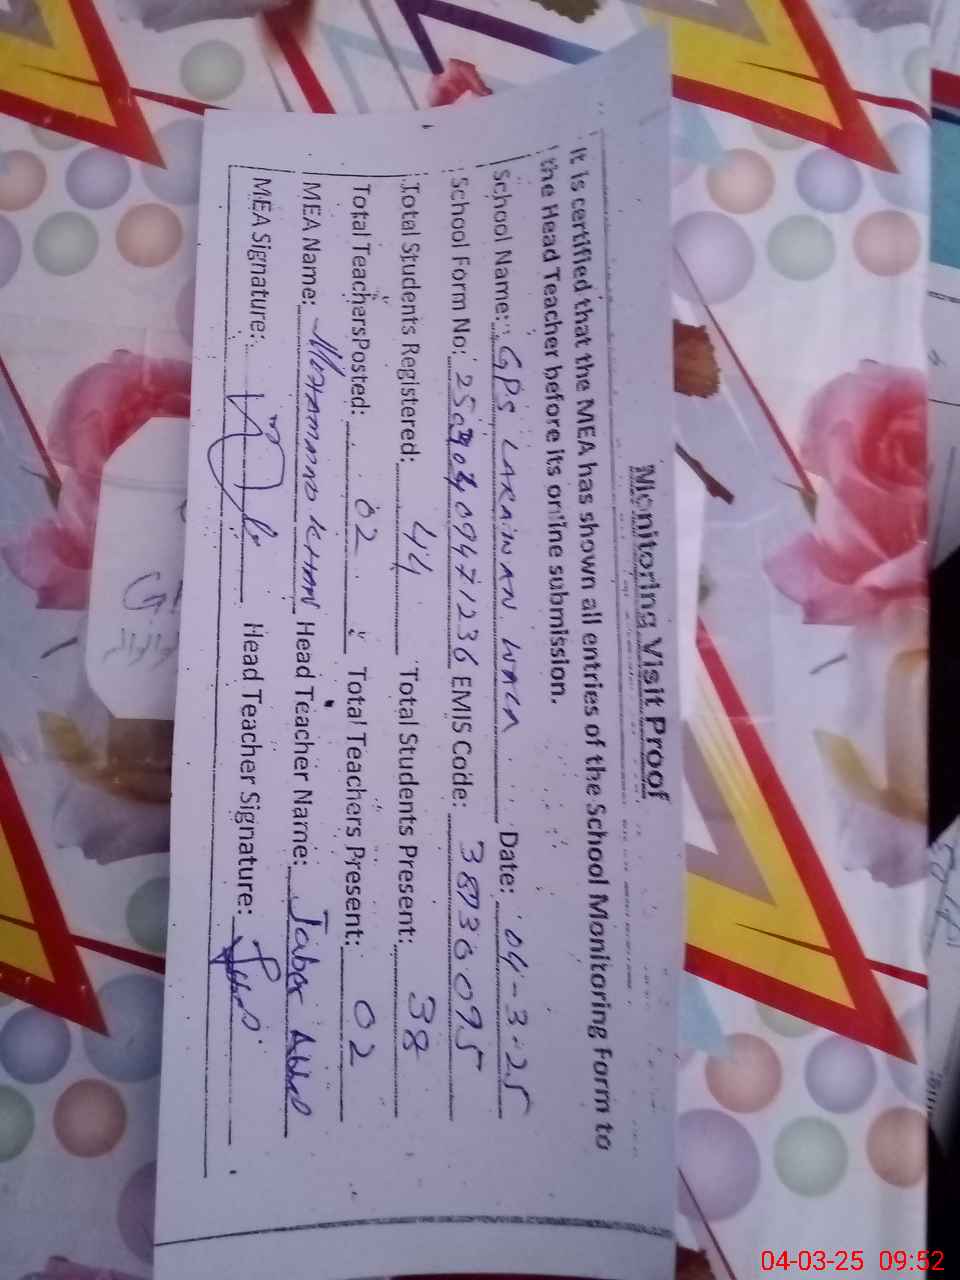 Monitoring Visit Proof
It is certified that the MEA has shown all entries of the School Monitoring Form to
the Head Teacher before its online submission.
School Name: GPS LARAINAN WALA Date: 04-3-25
School Form No: EMIS Code: 38930095
Total Students Registered: 44 Total Students Present: 38
Total TeachersPosted: 02 Total Teachers Present: 02
MEA Name: MOHAMMAD KHAN Head Teacher Name: Jaber Abbas
MEA Signature: Head Teacher Signature:
04-03-25 09:52